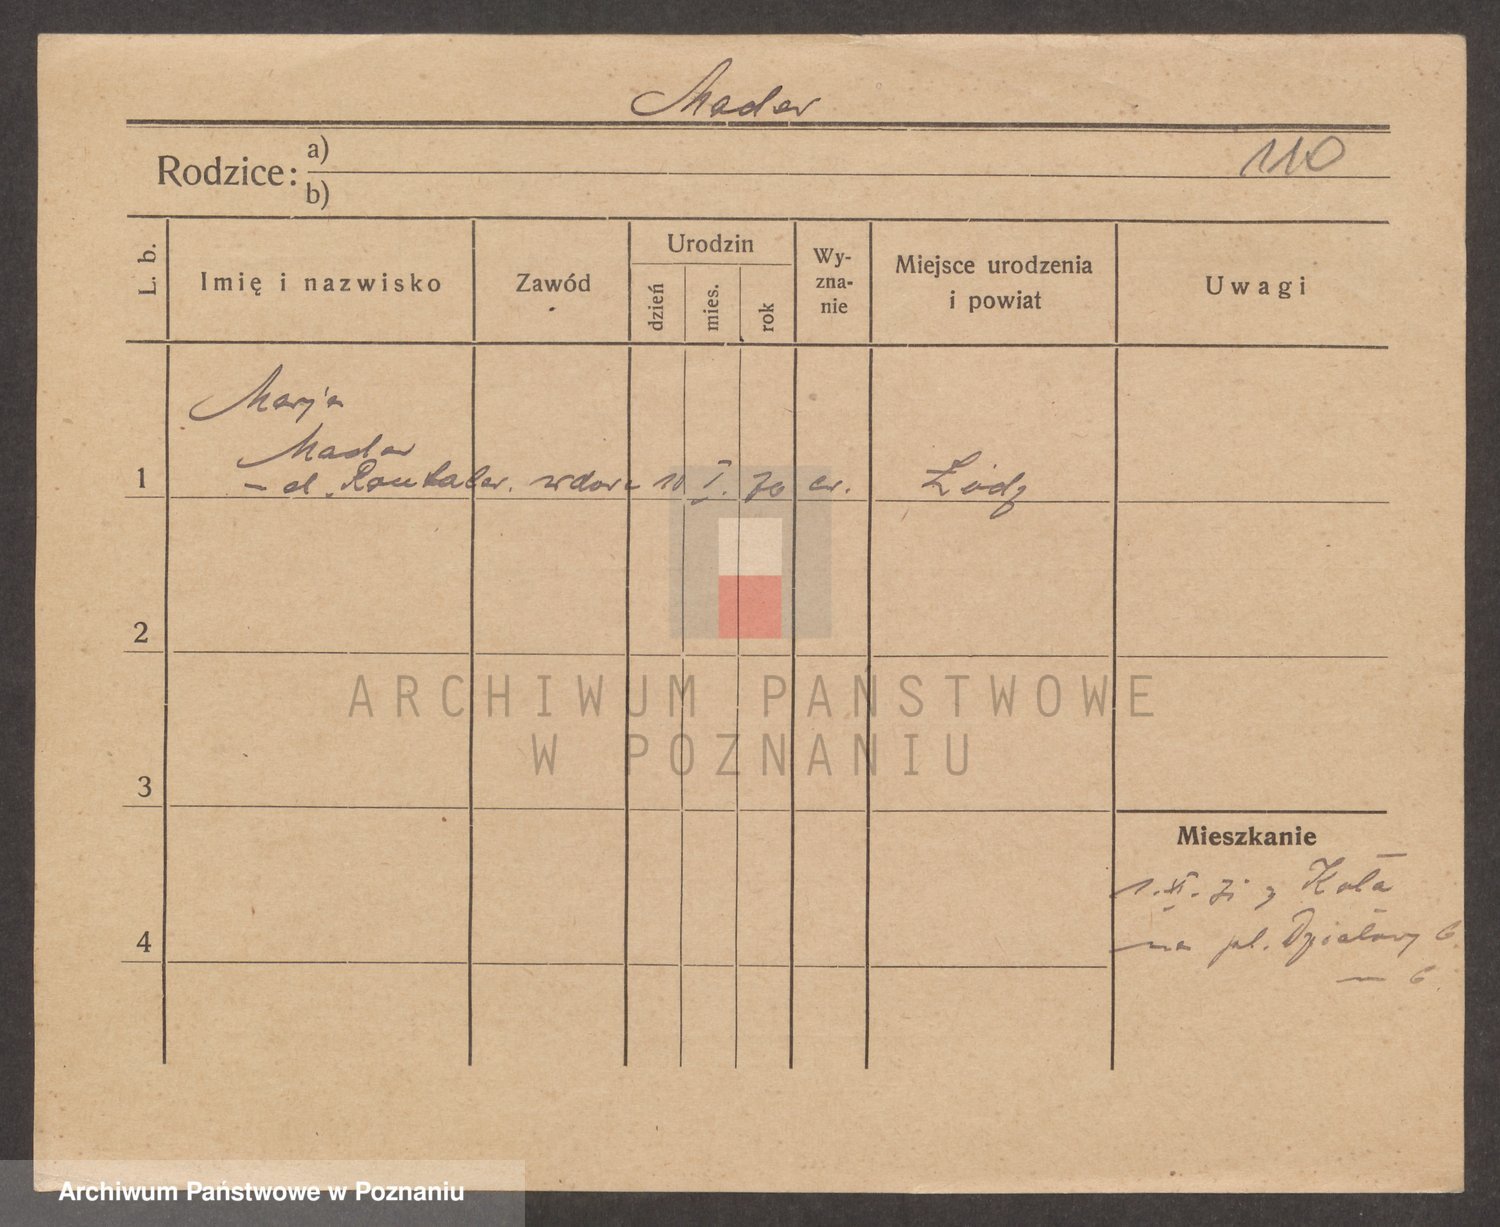 Mader
Rodzice: a)
110
b)
L. b.
Imię i nazwisko
Zawód
Urodzin
dzień
mies.
rok
Wy-
zna-
nie
Miejsce urodzenia
i powiat
Uwagi
Marja
Mader
1
wdowa 10 I. 70 ew. Łódź
2
ARCHIWUM PAŃSTWOWE
W POZNANIU
3
Mieszkanie
1. XI. z Koła
4
na pl. Działowy 6.
— 6.
Archiwum Państwowe w Poznaniu